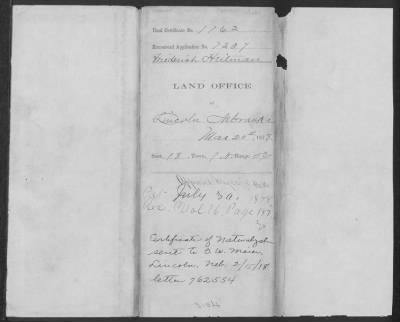 Final Certificate No. 1762
Homestead Application No. 7207
Frederick Heilman
LAND OFFICE
at
Lincoln Nebraska
Mar 20th, 1878
Sect. 18, Town. 9 N, Range
Pat July 30, 1878
Rec. Vol 16, Page 187
Certificate of Naturalizatn
sent to D. W. Maier,
Lincoln, Neb, 2/15/18
letter 762554